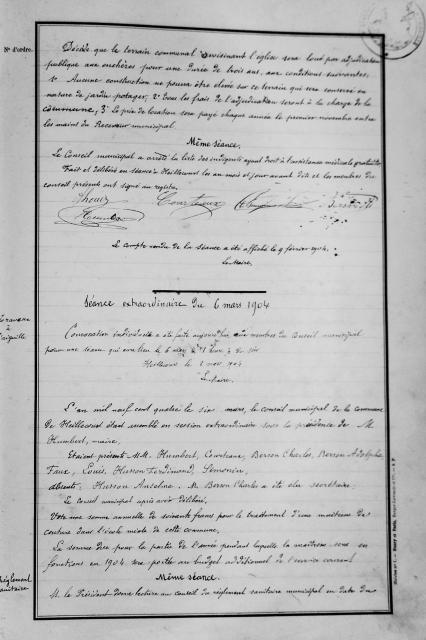 N° d'ordre.
Décide que le terrain communal avoisinant l'église sera loué par adjudication
publique aux enchères pour une durée de trois ans, aux conditions suivantes,
1° Aucune construction ne pourra être élevée sur ce terrain qui sera conservé en
nature de jardin potager; 2° Tous les frais de l'adjudication seront à la charge de la
commune; 3° Le prix de location sera payé chaque année le premier novembre entre
les mains du Receveur municipal.
Même séance.
Le Conseil municipal a arrêté la liste des indigents ayant droit à l'assistance médicale gratuite
Fait et délibéré en séance à Heillecourt les an mois et jour avant dits et les membres du
conseil présents ont signé au registre.
Courteaux
Le compte rendu de la séance a été affiché le 9 février 1904.
Le Maire,
Séance extraordinaire du 6 mars 1904
Convocation individuelle a été faite aujourd'hui aux membres du Conseil municipal
pour une séance qui aura lieu le 6 du soir
Heillecourt le mars 1904
Le Maire.
L'an mil neuf cent quatre le six mars, le conseil municipal de la commune
de Heillecourt étant assemblé en session extraordinaire sous la présidence de M.
Humbert, maire,
Etaient présents MM. Humbert, Berson Charles, Berson Adolphe
Faux, Louis, Husson Ferdinand,
absents, Husson Anselme. M. Berson Charles a été élu secrétaire.
Le conseil municipal après avoir délibéré,
Vote une somme annuelle de soixante francs pour le traitement d'une maîtresse de
couture dans l'école mixte de cette commune,
La somme due pour la partie de l'année pendant laquelle la maîtresse sera en
fonctions en 1904 sera portée au budget additionnel de l'exercice courant
Travaux
à
l'aiguille
Même séance.
Règlement
sanitaire
M. le Président donne lecture au conseil du règlement sanitaire municipal en date du